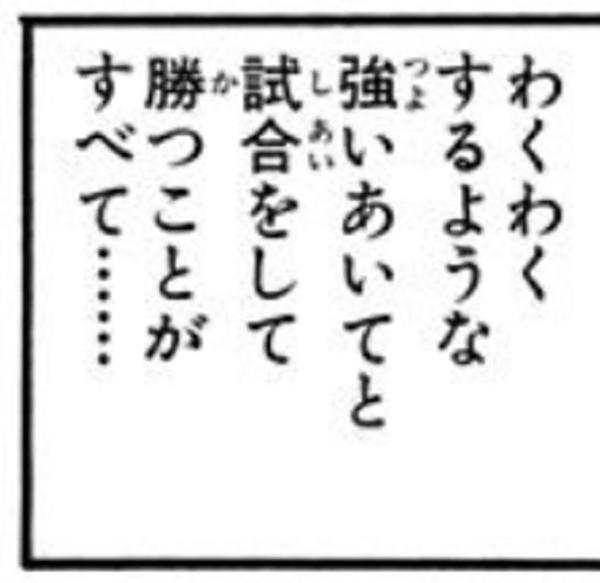 わくわく
するような
強いあいてと
試合をして
勝つことが
すべて……